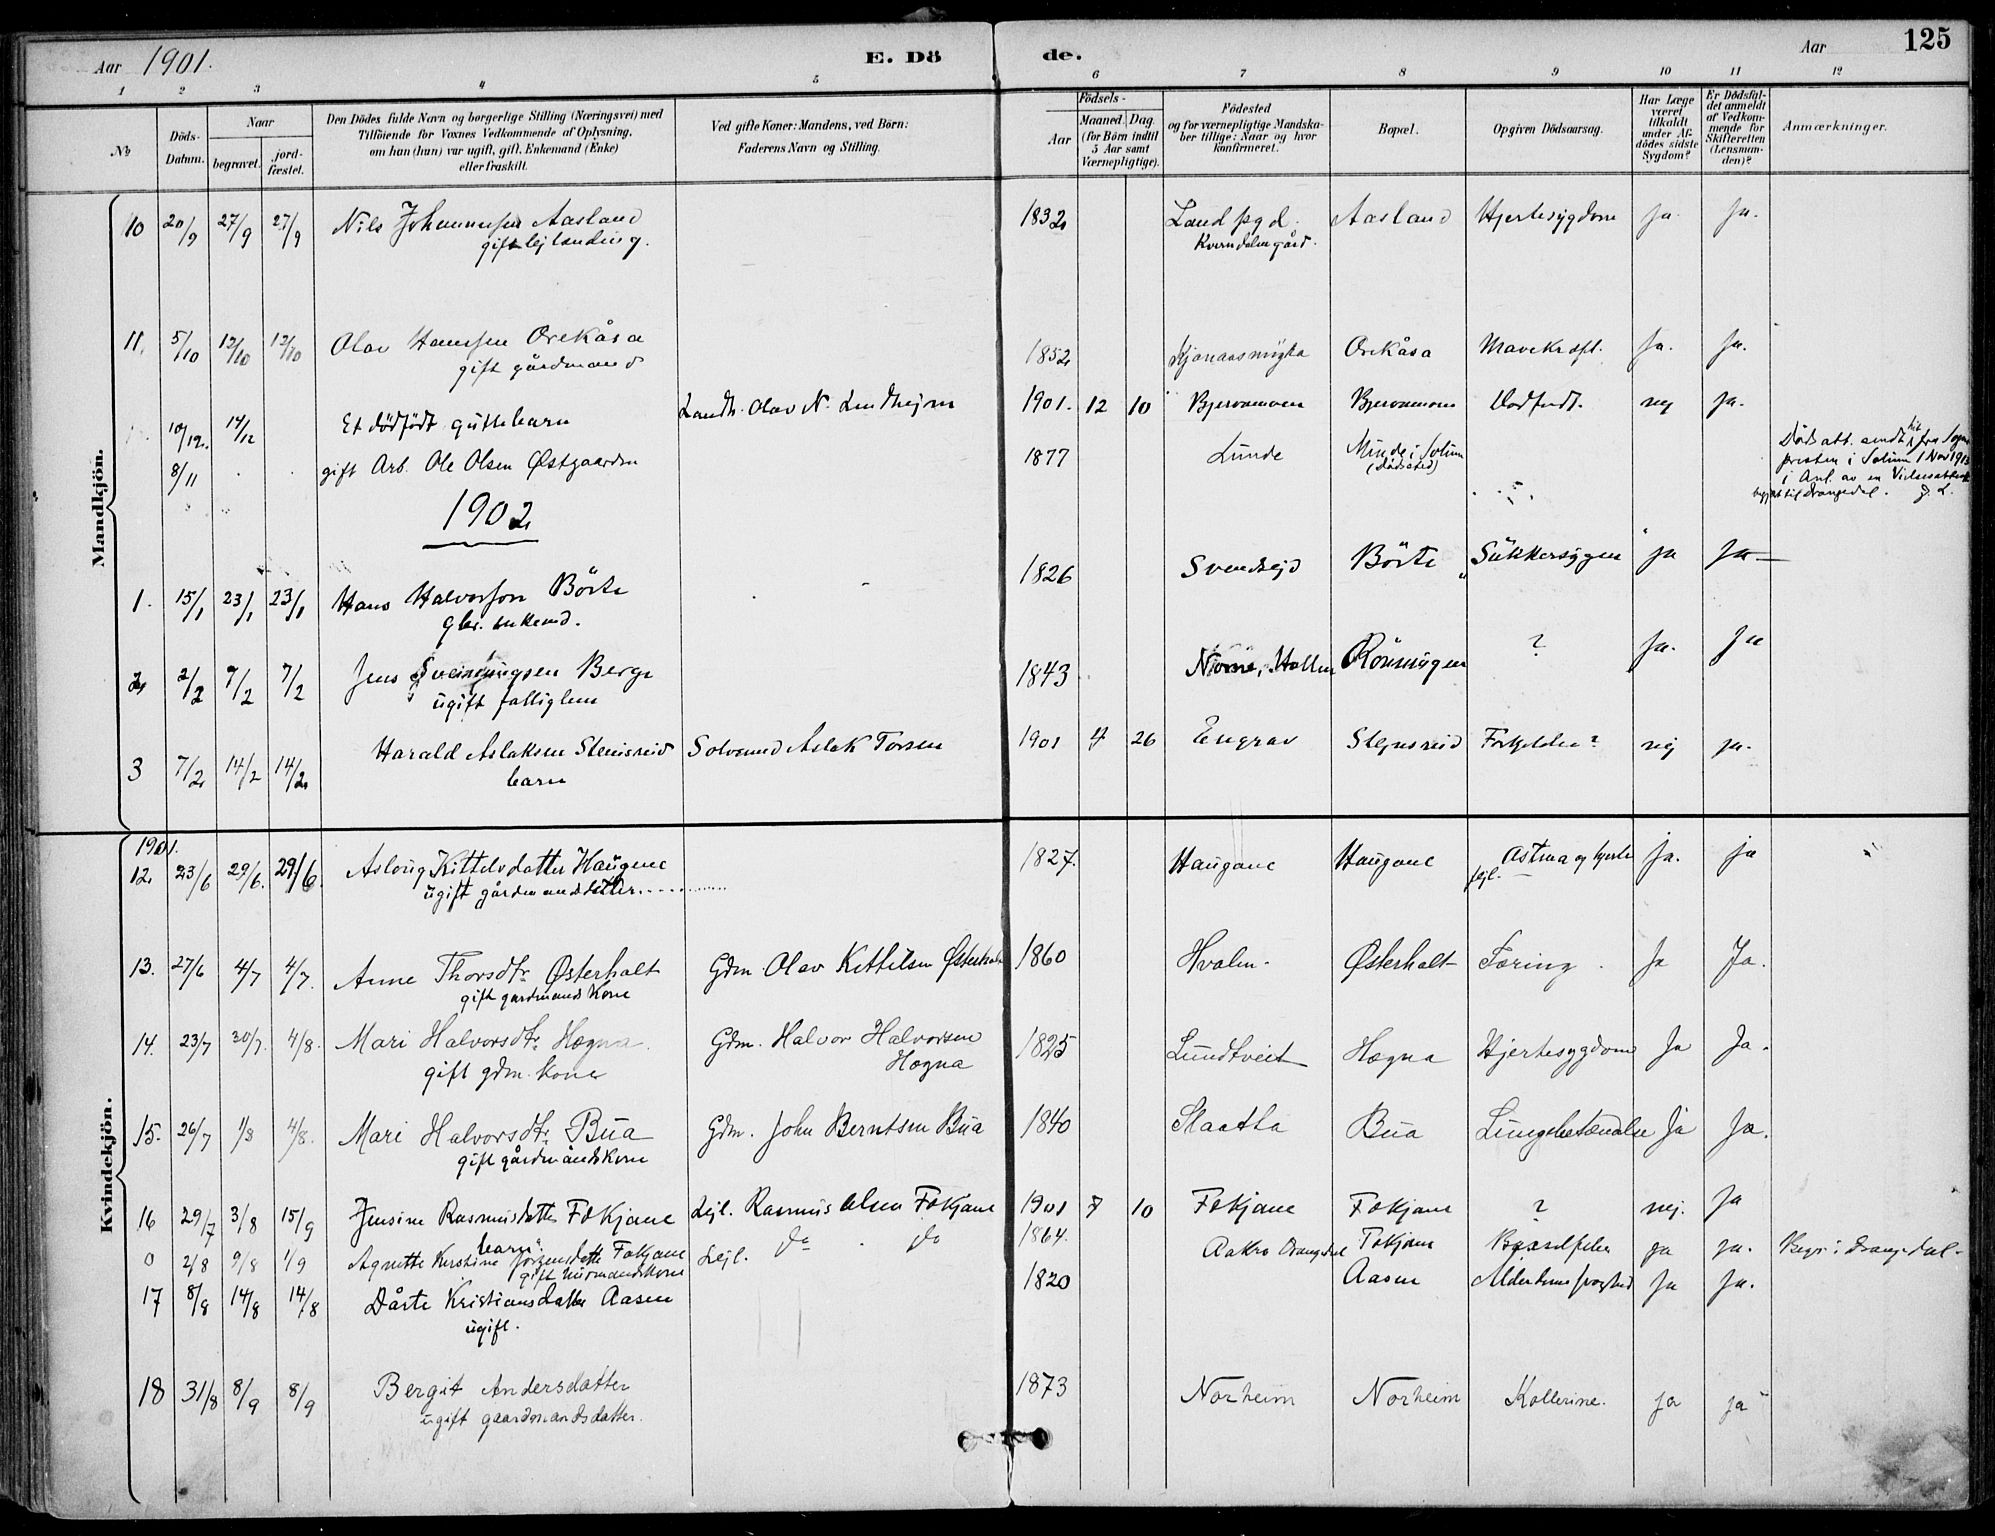 Aar 1901.
E. Dö
de.
Aar
125
1 2 3 4 5 6 7 8 9 10 11 12
№
Döds-
Datum.
Naar
begravet.
jord-
fæstet.
Den Dödes fulde Navn og borgerlige Stilling (Næringsvei) med
Tilföiende for Voxnes Vedkommende af Oplysning,
om han (hun) var ugift, gift, Enkemand (Enke)
eller fraskilt.
Ved gifte Koner: Mandens, ved Börn:
Faderens Navn og Stilling.
Födsels-
Aar
Maaned. Dag.
(for Börn indtil
5 Aar samt
Værnepligtige).
Födested
og for værnepligtige Mandska-
ber tillige: Naar og hvor
konfirmeret.
Bopæl.
Opgiven Dödsaarsag.
Har Læge
været
tilkaldt
under Af-
dödes sidste
Sygdom?
Er Dödsfal-
det anmeldt
af Vedkom-
mende for
Skifteretten
(Lensman-
den)?
Anmærkninger.
Mandkjön.
10 20/9 27/9 27/9 Nils Johannesen Aasland 1832 Aasland Hjertesygdom ja. ja.
gift
11. 5/10 12/10 12/10 Olav Hansen Orekåsa 1852 Orekåsa ja. ja.
gift gårdmand
10/12. 14/12 Et dödfödt guttebarn Landh. Olav N. 1901. 12 10 Dödfødt. nej ja.
8/11 gift Arb. Ole Olsen Østgaarden 1877 Lunde Minde i Solum
(Dödssted)
Döds att. sendt hit fra Sogne
presten i Solum 1 Nov
i Anl. av en
til Drangedal.
1902
1. 15/1 23/1 23/1 Hans Halvorson Börte 1826 Svendsejd Börte Sukkersygen ja ja
gbr. enkemd.
2 2/2 7/2 7/2 Jens Berge 1843 Holla ? ja. ja
ugift
3 7/2 14/2 14/2 Harald Aslaksen Stensreid Aslak Torsen 1901 4 26 Engrav nej ja.
barn
Kvindekjön.
1901.
12. 23/6 29/6. 29/6. Aslaug Kittelsdatter Haugene 1827. Haugane Haugane Astma og hjerte ja. ja
ugift gårdmandsdatter fejl.
13. 27/6 4/7 4/7. Anne Thorsdtr Østerholt Gdm Olav Kittilsen Østerholt 1860 Østerholt Tæring. Ja Ja.
gift gardmands Kone
14. 23/7 30/7. 4/8. Mari Halvorsdtr. Hægna. Gdm. Halvor Halvorsen 1825 Lundtveit Hægna Hjertesygdom Ja Ja.
gift gdm. Kone Hægna
15. 26/7 1/8 4/8. Mari Halvorsdtr. Bua Gdm. John Berntsen Bua 1840 Slaatta Bua Lungebetændelse Ja Ja.
gift gårdmandskone
16 29/7 3/8 15/9 Jensine Rasmusdatter Fokjane Lejl. Rasmus Olsen Fokjane 1901 7 10 Fokjane Fokjane ? nej. ja
barn
0 2/8 9/8 1/9 Agnette Kirstine Jörgensdatter Fokjane Lejl. do do 1864. Aakre Drangedal Fokjane ja ja. Begr. i Drangedal.
gift husmandskone
17 8/8 14/8 14/8 Dårte Kristiansdatter Aasen 1820 Aasen ja ja.
ugift.
18 31/8 8/9 8/9 Bergit Andersdatter 1873 Norheim Norheim Kollerine. ja ja
ugift gaardmandsdatter.